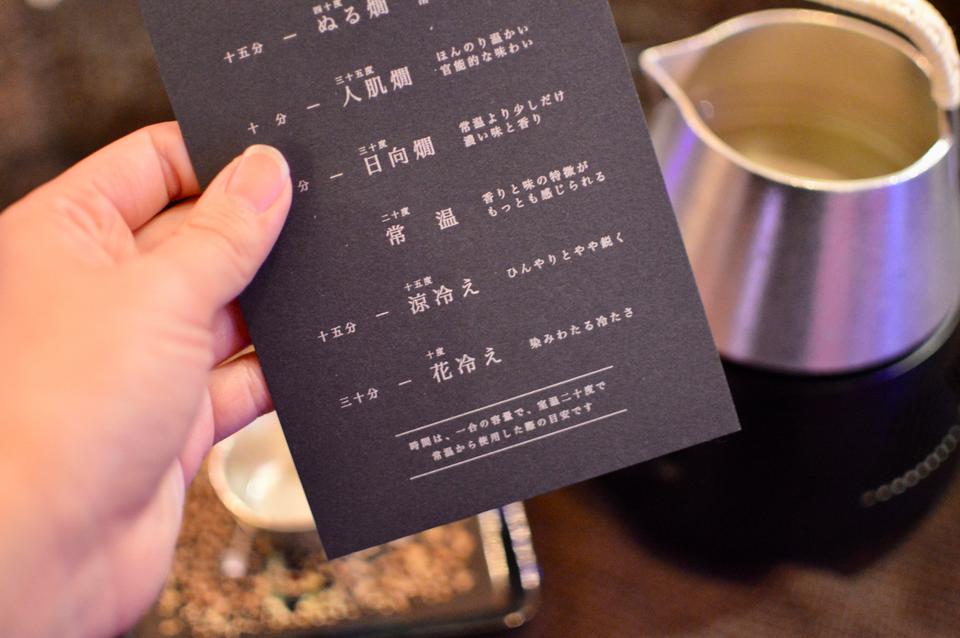 四十度
十五分 ー ぬる燗
三十五度
十分 ー 人肌燗
ほんのり温かい
官能的な味わい
三十度
分 ー 日向燗
常温より少しだけ
濃い味と香り
二十度
常温
香りと味の特徴が
もっとも感じられる
十五度
十五分 ー 涼冷え ひんやりとやや鋭く
十度
三十分 ー 花冷え 染みわたる冷たさ
時間は、一合の容量で、室温二十度で
常温から使用した際の目安です